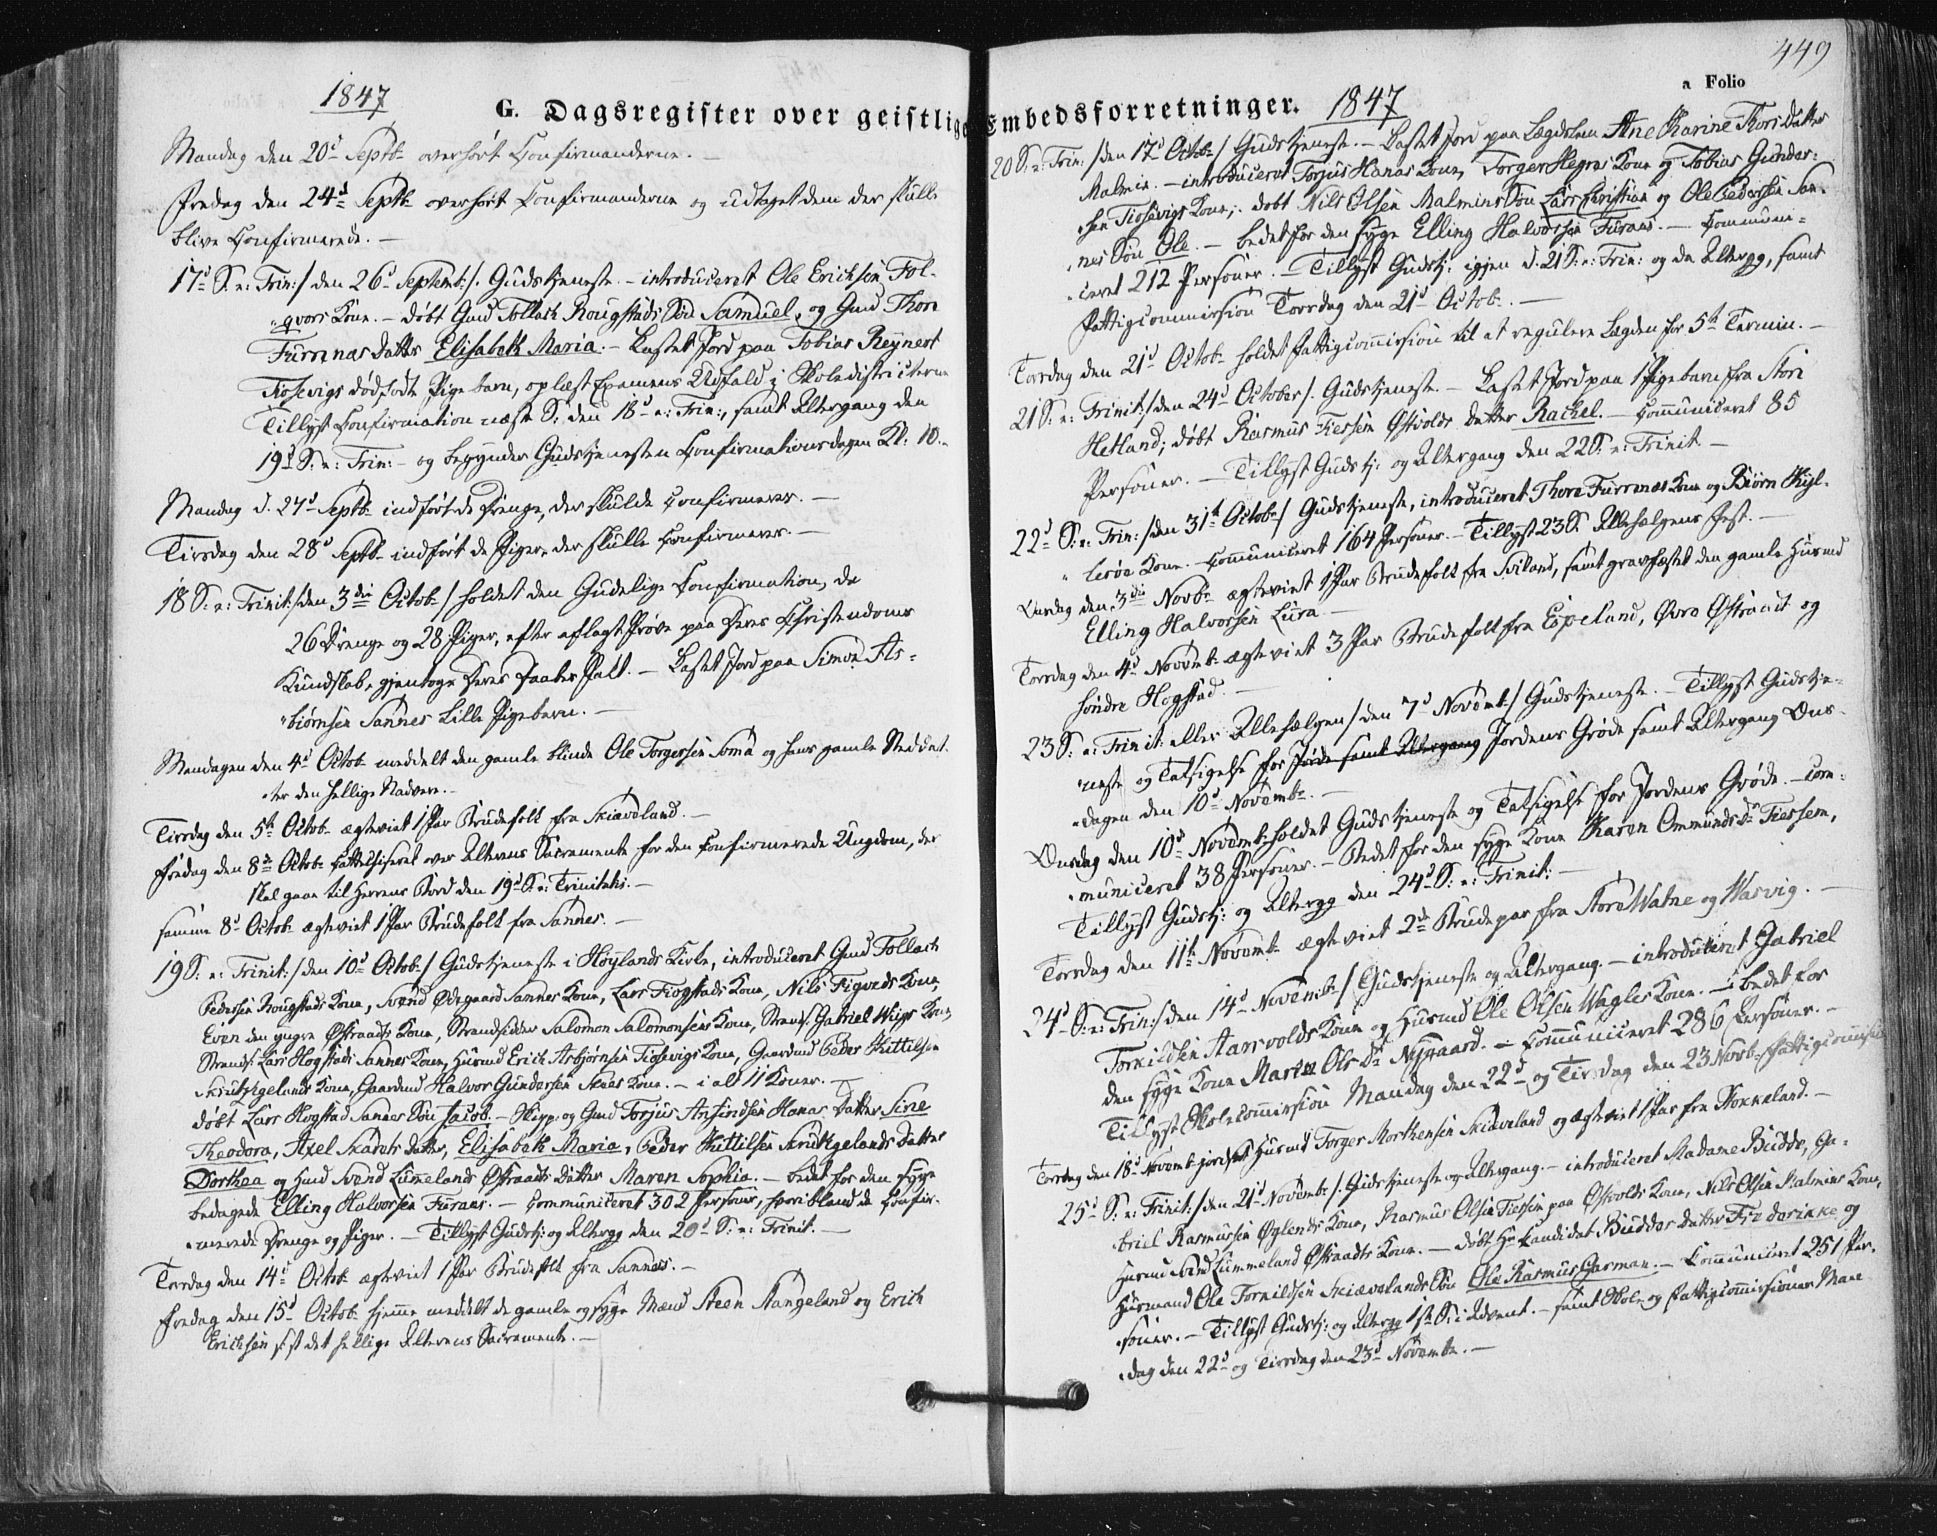 1847
G. Dagsregister over geistlige
Mandag den 20d Septbr overhört Confirmanderne. —
Fredag den 24d Septbr overhört Confirmanderne og udtaget dem der skulle
blive Confirmerede. —
17d S. e: Trin:/ den 26d Septemb:/. Gudstjeneste. — introduceret Ole Erichsen Fol-
qvors Kone. — döbt Gmd Tollach Rougstads Sön Samuel, og Gmd Thore
Furrenæs Datter Elisabeth Maria. — Kastet Jord paa Tobias Reynert
Tiosevigs dödfödte Pigebarn, oplæst Examens Udfald i Skoledistricterne
Tillyst Confirmation næste S: den 18d e: Trin:, samt Altergang den
19d S: e: Trin: — og begynder Gudstjenesten Confirmationsdagen Kl: 10. —
Mandag d. 27d Septbr indfört de Drenge, der skulde Confirmeres. —
Tirsdag den 28d Septbr indfört de Piger, der skulle Confirmeres. —
18 S: e: Trinit:/ den 3die Octob:/ holdet den Gudelige Confirmation, da
26 Drenge og 28 Piger, efter aflagt Pröve paa deres Christendoms
Kundskab, gjentoge deres Daabes Pakt. — Kastet Jord paa Simon As-
biörnsen Sannes lille Pigebarn. —
Mandagen den 4d Octob: meddelt den gamle blinde Ole Torgersen Somá og hans gamle
den hellige Nadvere. —
Tirsdag den 5te Octob: ægteviet 1 Par Brudefolk fra Skiæveland. —
Fredag den 8de Octob: Cattechiseret over Alterens Sacramente for den Confirmerede Ungdom, der
skal gaae til Herrens Bord den 19d S: e: Trinitatis. —
samme 8d Octob: ægteviet 1 Par Brudefolk fra Sannes. —
19 S: e: Trinit:/ den 10d Octob:/ Gudstjeneste i Höylands Kirke, introduceret Gmd Tollach
Pedersen Rougstads Kone, Svend Ödegaard Sannes Kone, Lars Tiogstads Kone, Nils Figveds Kone,
Even den yngre Östraadts Kone, Strandsidder Salomon Salomonsens Kone, Strands: Gabriel Wiigs Kone,
Strands: Lars Hogstads Sannes Kone, Husmd Erich Asbjörnsen Tiosevigs Kone, Gaardmd Peder Kittilsen
Skrudtzgelands Kone, Gaardmd Halvor Gundersen Skaas Kone. — i alt 11 Koner. —
döbt Lars Hogstad Sannes Sön Jacob. — Skipp: og Gmd Torjus Anfindsen Hanas Datter Sine
Theodora, Axel Skarets Datter, Elisabeth Maria, Peder Kittilsen Skrudtzgelands Datter
Dorthea og Hmd Svend Lümelands Östraadts Datter Maren Sophia. — bedet for den syge
bedagede Elling Halvorsen Furaas. — Communiceret 302 Personer, hvoriblandt de Confir-
merede Drenge og Piger. — Tillyst Gudstj: og Altergg den 20d S: e: Trinit. —
Torsdag den 14d Octob: ægteviet 1 Par Brudefolk fra Sannes. —
Fredag den 15d Octob: hjemme meddelt de gamle og syge Mænd Steen Stangeland og Erich
Erichsen sist det hellige Alterens Sacramente. —
449
a Folio
Embedsforretninger. 1847
20 S: e: Trin:/ den 17d Octob:/ Gudstjeneste. — Kastet Jord paa Lægdslem Ane Karine Thors Datter
Malmin. — introduceret Torjus Hanas Kone, Torger Hegres Kone og Tobias Gunder-
sen Tiosevigs Kone; döbt Nils Olsen Malmins Sön Lars Christian og Ole Pedersen San-
nes Sön Ole. — bedet for den syge Elling Halvorsen Furaas. — Communi-
ceret 212 Personer. — Tillyst Gudstj: igjen d. 21 S: e: Trin: og da Altergg, samt
Fattigcommission Torsdag den 21d Octob: —
Torsdag den 21d Octob: holdet Fattigcommission til at regulere Lægden for 5te Termin. —
21 S: e: Trinit:/ den 24d October/. Gudstjeneste. — Kastet Jord paa 1 Pigebarn fra Store
Hetland; döbt Rasmus Tiessen Östvolds Datter Rachel. — Communiceret 85
Personer. — Tillyst Gudstj: og Altergang den 22 S: e: Trinit. —
22d S: e: Trin:/ den 31te Octob:/ Gudstjeneste, introduceret Thore Furrenæs Kone og Biörn Kyl-
lesöe Kone. Communiceret 164 Personer. — Tillyst 23 S: Allehelgens Fest. —
Onsdag den 3die Novbr ægteviet 1 Par Brudefolk fra Sviland, samt gravfæstet den gamle Husmd
Elling Halvorsen Lura —
Torsdag den 4d Novemb: ægteviet 3 Par Brudefolk fra Espeland, Övre Östraadt og
söndre Hogstad. —
23 S: e: Trinit: eller Allehelgen/ den 7d Novemb:/ Gudstjeneste. — Tillyst Gudstje-
neste og Taksigelse for Jorde samt Altergang Jordens Gröde samt Altergang Ons-
dagen den 10d Novembr. —
Onsdag den 10d Novemb: holdet Gudstjeneste og Taksigelse for Jordens Gröde. — Com-
municeret 38 Personer. — Bedet for den syge Kone Karen Ommunds Dr Tiessem,
Tillyst Gudstj: og Altergg den 24d S: e: Trinit: —
Torsdag den 11te Novemb: ægteviet 2de Brudepar fra Store Watne og Wasvig. —
24d S: e: Trin:/ den 14d Novemb:/ Gudstjeneste og Altergang. — introduceret Gabriel
Torkildsen Aarsvolds Kone og Husmd Ole Olsen Wagles Kone. — bedet for
den syge Kone Maren Ols Dr Nygaard. — Communiceret 286 Personer. —
Tillyst Skolecommission Mandag den 22d og Tirsdag den 23 Novb: Fattigcommission
Torsdag den 18d Novemb: jordfæstet Husmd Torger Morthensen Skiæveland og ægteviet 1 Par fra Stokkeland. —
25d S: e: Trinit:/ den 21d Novemb:/. Gudstjeneste og Altergang. — introduceret Madame Budde, Ga-
briel Rasmussen Öglends Kone, Rasmus Olsen Tiessen paa Östvolds Kone, Nils Olsen Malmins Kone,
Husmd Svend Lümmeland Östraadts Kone. — döbt Hr Kandidat Buddes Datter Frederikke og
Husmand Ole Torkildsen Skiævelands Sön Ole Rasmus Garman. — Communiceret 251 Per-
soner. — Tillyst Gudstj: og Altergg 1ste S: i Advent. — samt Skole og Fattigcommissioner Man-
dag den 22d og Tirsdag den 23d Novembr. —